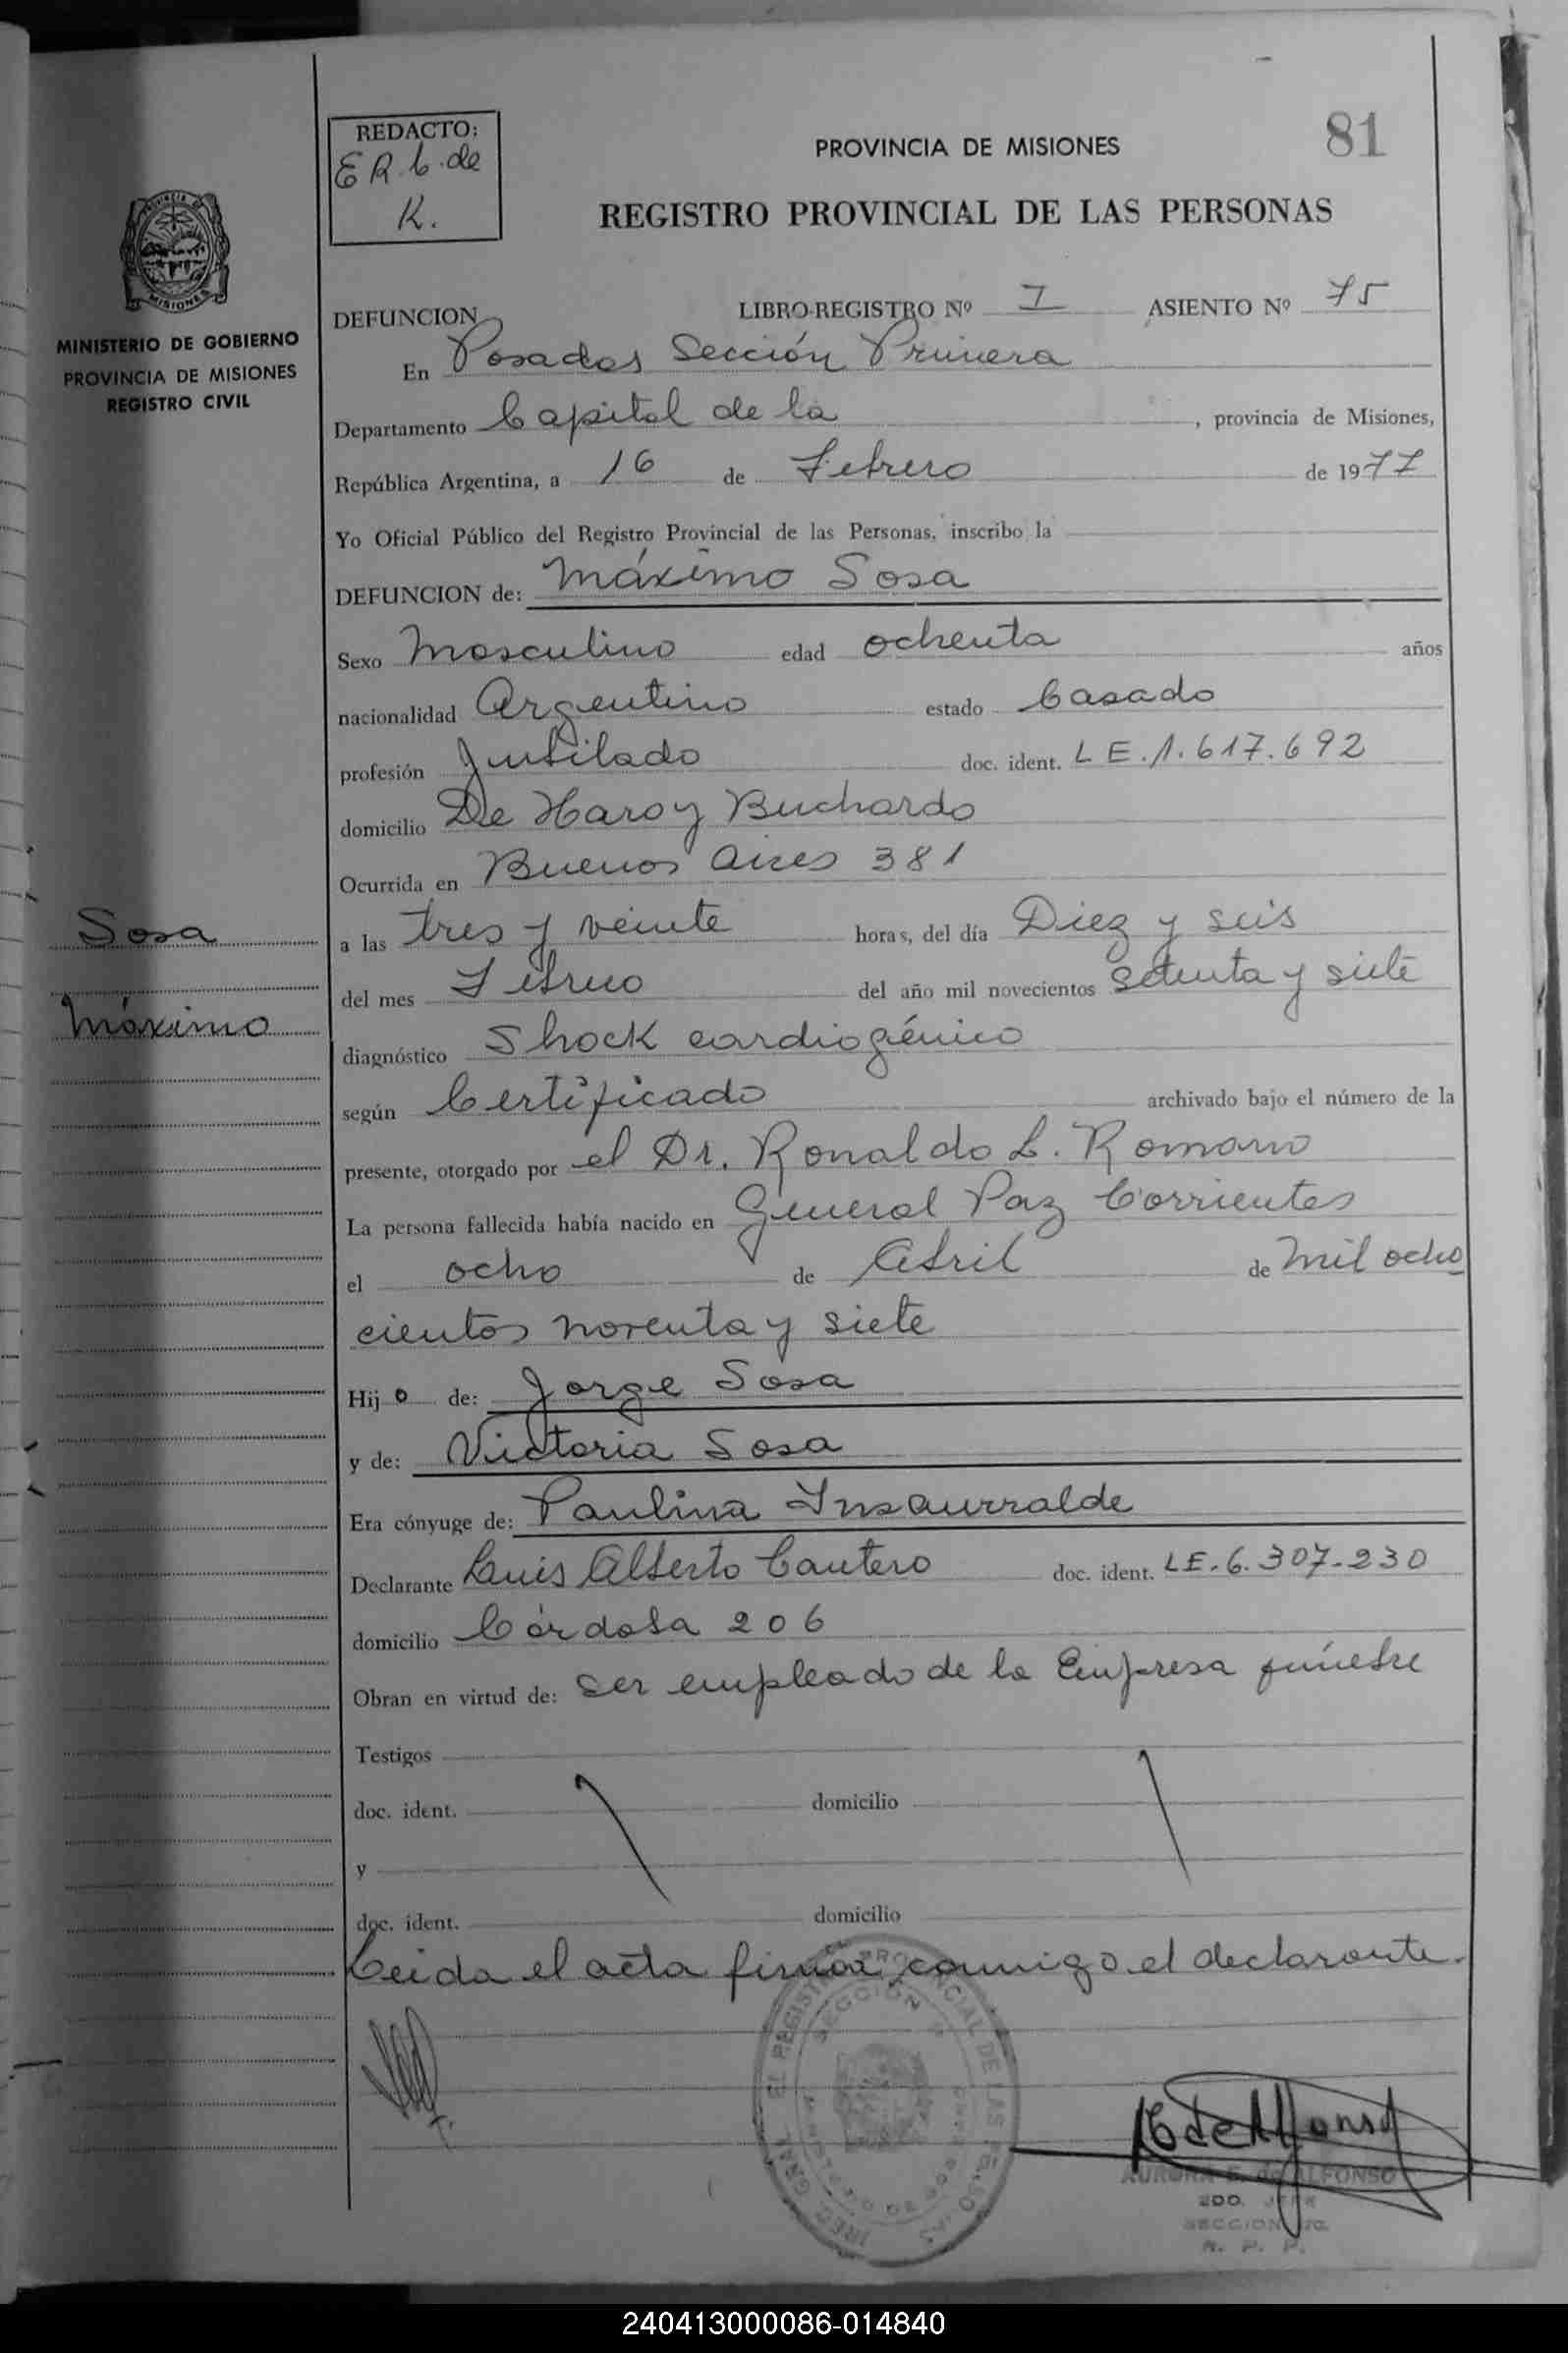 81
REDACTO:
E R C. de
K.
PROVINCIA DE MISIONES
REGISTRO PROVINCIAL DE LAS PERSONAS
MISIONES
MINISTERIO DE GOBIERNO
PROVINCIA DE MISIONES
REGISTRO CIVIL
DEFUNCION LIBRO-REGISTRO Nº I ASIENTO Nº 75
En Posadas Sección Primera
Departamento Capital de la , provincia de Misiones,
República Argentina, a 16 de Febrero de 1977
Yo Oficial Público del Registro Provincial de las Personas, inscribo la
DEFUNCION de: Máximo Sosa
Sexo Masculino edad ochenta años
nacionalidad Argentino estado Casado
profesión Jubilado doc. ident. LE.1.617.692
domicilio De Haro y Buchardo
Ocurrida en Buenos Aires 381
Sosa
a las tres y veinte horas, del día Diez y seis
del mes Febrero del año mil novecientos setenta y siete
Máximo
diagnóstico Shock cardiogénico
según Certificado archivado bajo el número de la
presente, otorgado por el Dr. Ronaldo L. Romano
La persona fallecida había nacido en General Paz Corrientes
el ocho de Abril de mil ocho
cientos noventa y siete
Hijo de: Jorge Sosa
y de: Victoria Sosa
Era cónyuge de: Paulina Insaurralde
Declarante Luis Alberto Cantero doc. ident. LE.6.307.230
domicilio Córdoba 206
Obran en virtud de: ser empleado de la Empresa fúnebre
Testigos
doc. ident. domicilio
y
doc. ident. domicilio
Leida el acta firma conmigo el declarante.
AURORA E. de ALFONSO
2DO. JEFE
SECCION 1ra.
R. P. P.
240413000086-014840